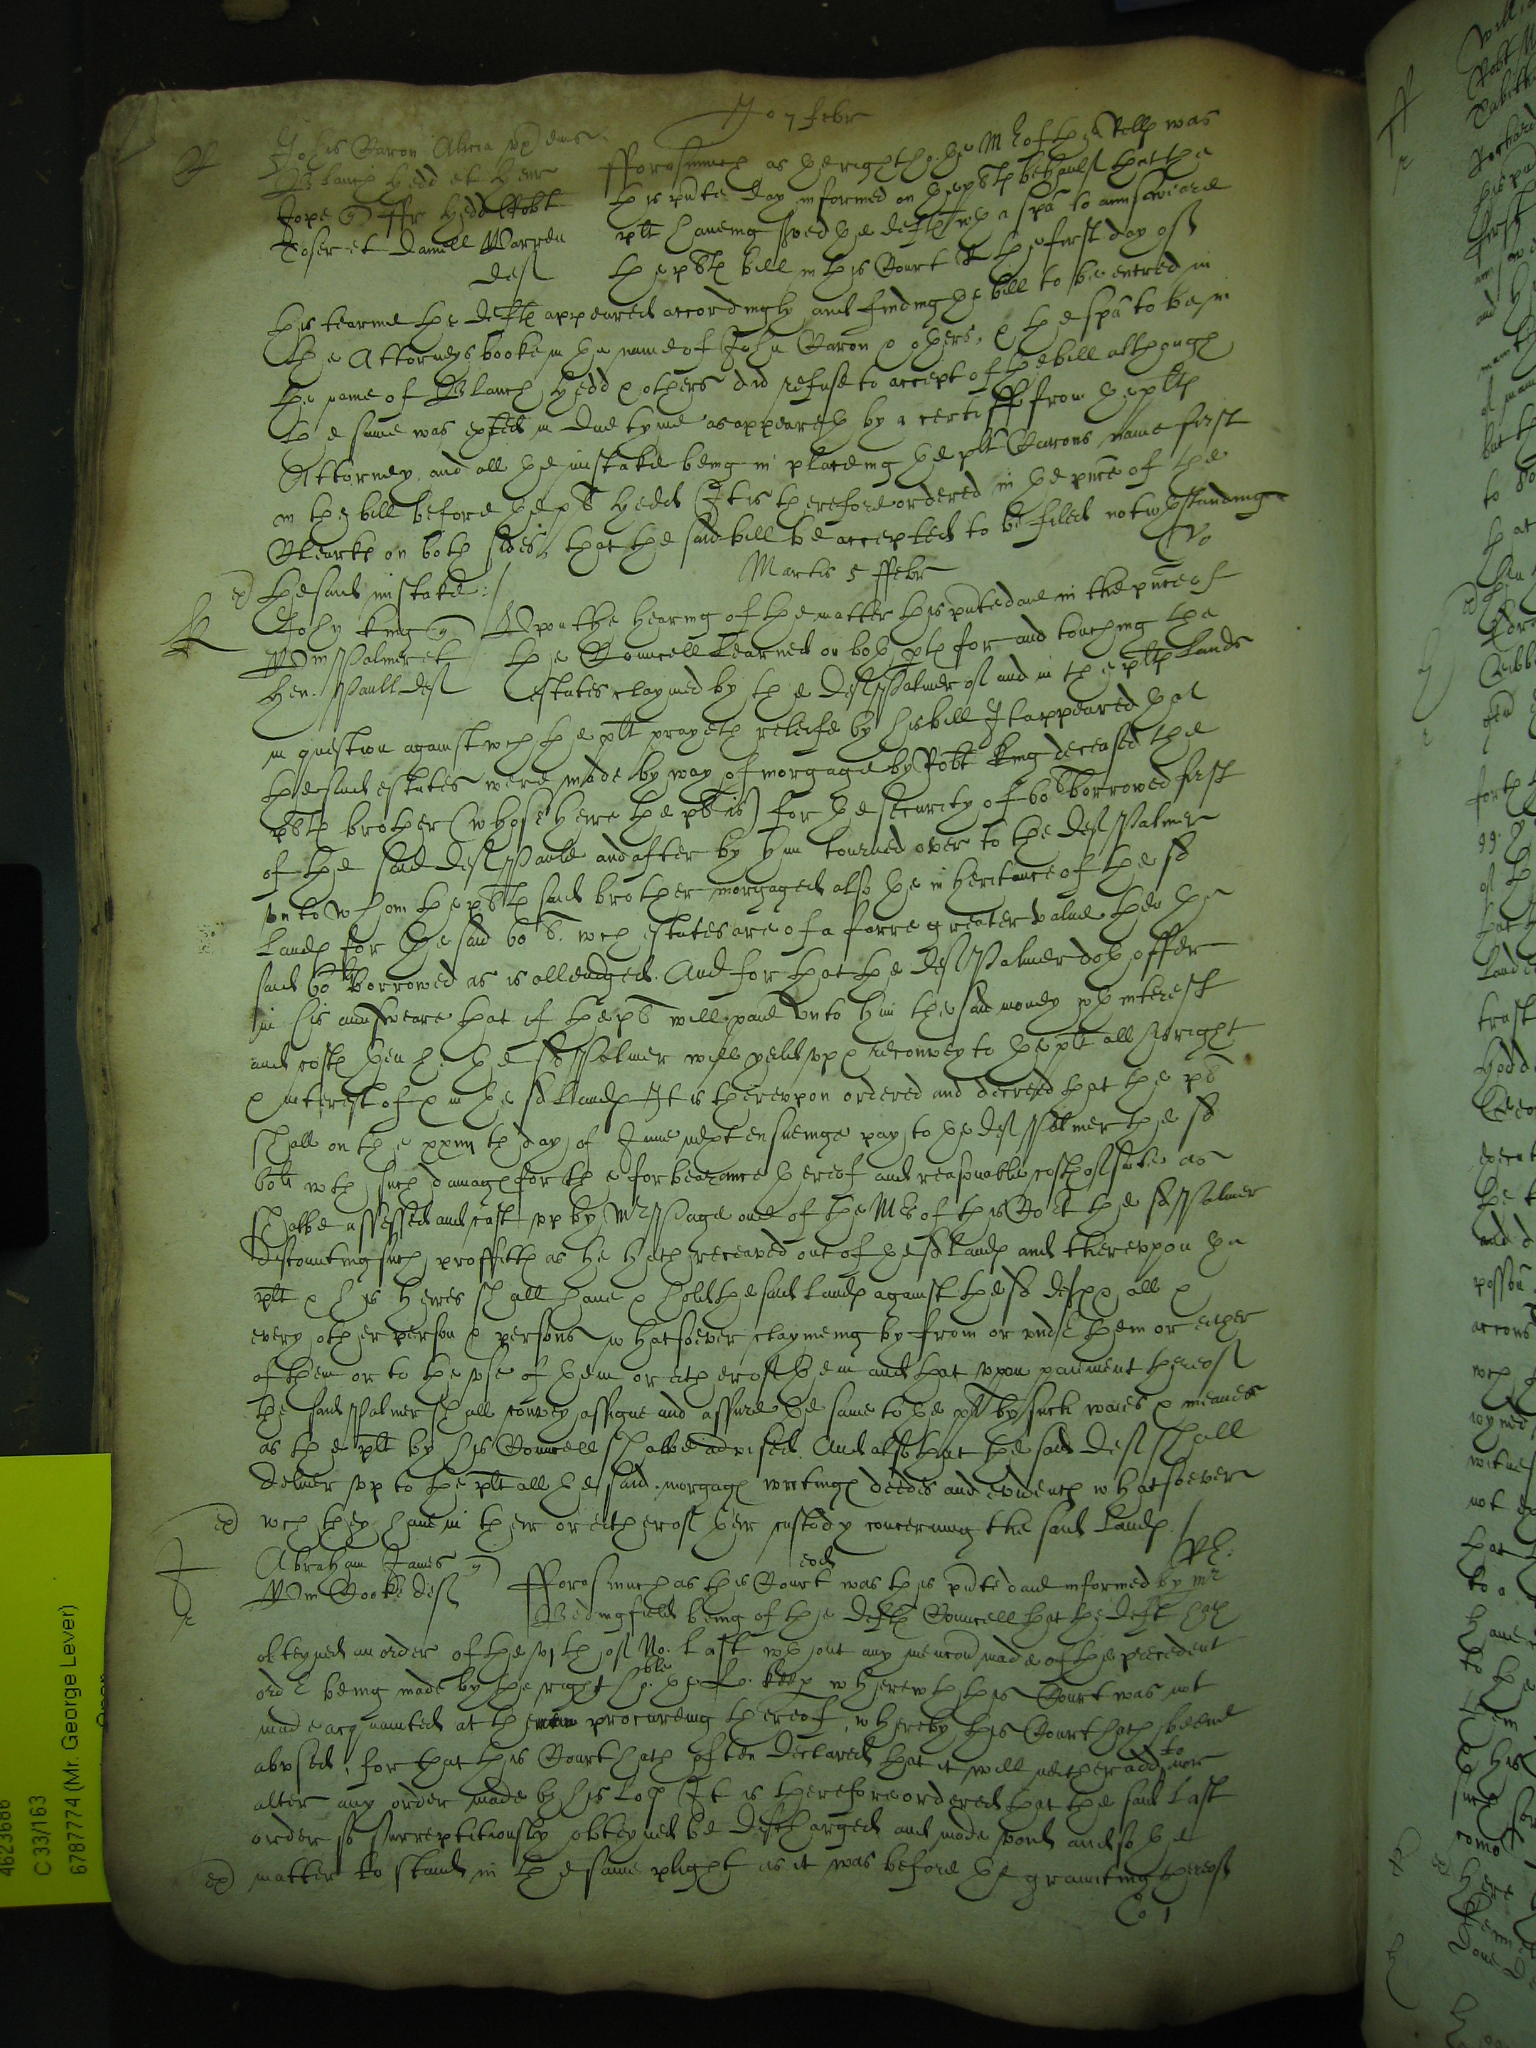 Jo 7 febr
Johis Baron Alicia ux eius
Blanch Hedd et Henr
Jope qr ffr Hedd Robt
Joser et Daniell Warren
deft
fforosmuch as the right ho: the Mr of the Rolls was
this pnte day informed on the plts behaulf that the
plt haueing serued the defts wth a spa to aunsweare
the plts bill in this Court the first day of
this tearme the defts appeared accordingly and finding the bill to be entred in
the Attorneys booke in the name of John Baron & others, & the spa to be in
the name of Blanch Hedd & others did refuse to accept of the bill although
the same was exhted in due tyme as appeareth by a certiff from the plts
Attorney and all the mistake being in placeing the plt Barons name first
in the bill before the plt Hedd It is therefore ordered in the pnce of the
Clearks on both sides, that the said bill be accepted to be filed notwthstanding
the said mistake:/
Martis 5 ffebr
John King qr
Wm Palmer et
Hen. Pault deft
Upon the hearing of the matter this pnte daie in the pnce of
the Councell learned on both pts for and touching the
estates claymed by the deft Palmer of and in the plts lands
in question against wch the plt prayeth releife by his bill It appeared that
the said estates were made by way of morgage by Robt King deceased the
plts brother (whose heire the plt is) for the security of 60li borrowed first
of the said deft Pault and after by him tourned over to the deft Palmer
vnto whom the plts said brother morgaged also the inheritance of the sd
lands for the said 60li. wch estates are of a farre greater value then the
said 60li borrowed as is alledged. And for that the deft Palmer doth offer
in his aunsweare that if the plt will paie vnto him the said money wth interest
and costs then he the sd Palmer will yeld vp & reconvey to the plt all his right
& interest of & in the sd lands It is therevpon ordered and decreed that the plt
shall on the xxiiijth day of June next ensueinge pay to the deft Palmer the sd
60li wth such damages for the forbearance thereof and reasonable costs of suite as
shalbe assessed and cast vp by Mr Page one of the Mrs of this Cort the sd Palmer
discounting such proffitts as he hath receaued out of the sd lands and therevpon the
plt & his heires shall haue & hold the said lands against the sd defts & all &
every other person & persons whatsoever claymeing by from or vnder them or either
of them or to the vse of them or either of them and that vpon paiment thereof
the said Palmer shall convey assigne and assure the same to the plt by such waies & meanes
as the plt by his Councell shalbe advised. And also that the said deft shall
deliuer vp to the plt all the said morgages writings deedes and evidences whatsoever
wch they haue in their or either of their custody concerning the said lands./
Abraham James qr
Wm Cooke deft
eod
fforosmuch as this Court was this pnte daie informed by mr
Bedingfield being of the defts Councell that the deft hath
obteyned an order of the vjth of No. last wthout any mencon made of the precedent
order being made by the right ho:ble the Lo. keep wherewth this Court was not
made acquainted at the procureing thereof, whereby this Court hath beene
abused, for that this Court hath often declared that it will neither add to nor
alter any order made by his Lop It is therefore ordered that the said last
order so surreptitiously obteyned be discharged and made void and so the
matter to stand in the same plight as it was before the graunting thereof
Co 1
C 33/163
6787774 (Mr. George Lever)